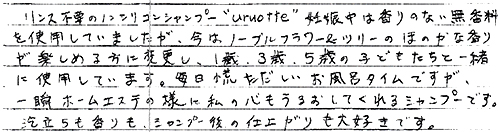 リンス不要のノンシリコンシャンプー"uruotte"妊娠中は香りのない無香料
を使用していましたが、今はノーブルフラワー&リリーのほのかな香り
が楽しめる方に変更し、1歳、3歳、5歳の子どもたちと一緒
に使用しています。毎日慌ただしいお風呂タイムですが、
一瞬ホームエステの様に私の心もうるおしてくれるシャンプーです。
泡立ちも香りも、シャンプー後の仕上がりも大好きです。